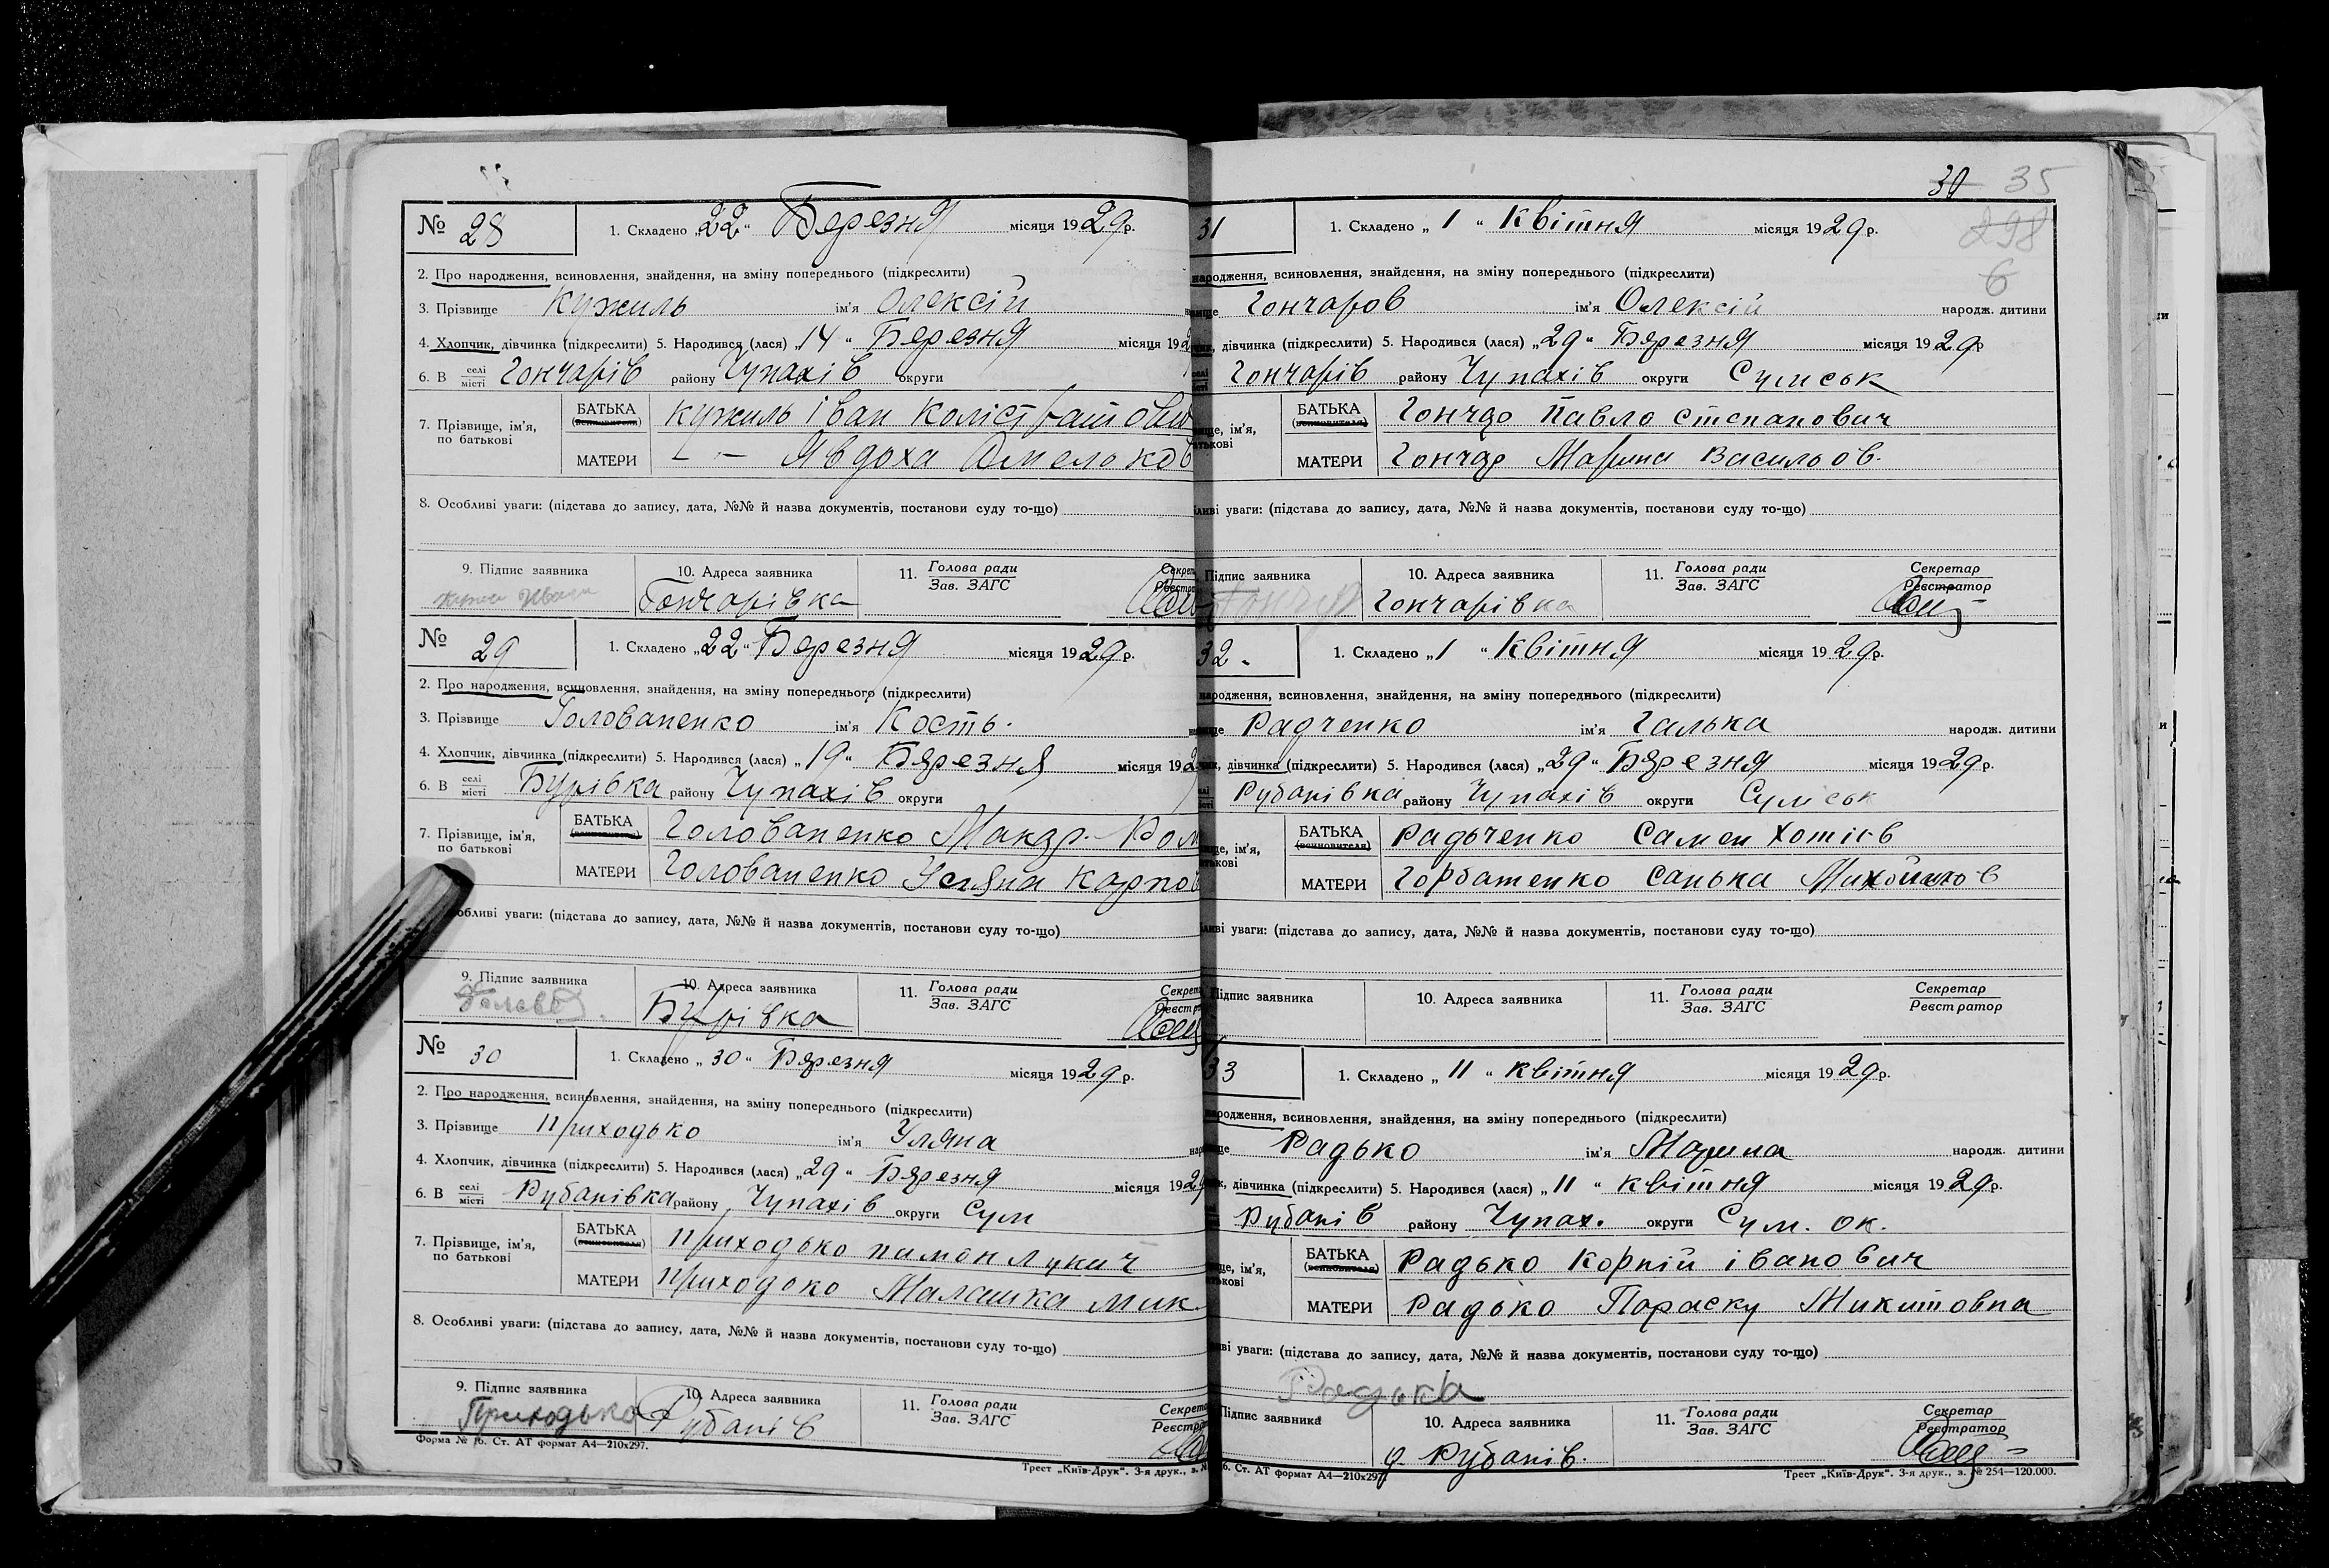 № 28
1. Складено „22“ Березня місяця 1929р.
2. Про народження, всиновлення, знайдення, на зміну попереднього (підкреслити)
3. Прізвище Кужиль ім'я Олексій
4. Хлопчик, дівчинка (підкреслити) 5. Народився (лася) „14“ Березня місяця 192
6. В селі місті Гончарів району Чупахів округи
7. Прізвище, ім'я, по батькові
БАТЬКА (всиновителя) Кужиль Іван Калістратови
МАТЕРИ — — Явдоха Омельков
8. Особливі уваги: (підстава до запису, дата, №№ й назва документів, постанови суду то-що)
9. Підпис заявника 10. Адреса заявника 11. Голова ради Зав. ЗАГС Секрета Реєстра
Гончарівка
№ 29
1. Складено „22“ Березня місяця 1929р.
2. Про народження, всиновлення, знайдення, на зміну попереднього (підкреслити)
3. Прізвище Голованенко ім'я Кость.
4. Хлопчик, дівчинка (підкреслити) 5. Народився (лася) „19“ Бярезня місяця 192
6. В селі місті Бурівка району Чупахів округи
7. Прізвище, ім'я, по батькові
БАТЬКА (всиновителя) Голованенко Макар. Ром
МАТЕРИ Голованенко Уляна Карпов
обливі уваги: (підстава до запису, дата, №№ й назва документів, постанови суду то-що)
9. Підпис заявника 10. Адреса заявника 11. Голова ради Зав. ЗАГС Секрета Реєстр
Бурівка
№ 30
1. Складено „30“ Бярезня місяця 1929р.
2. Про народження, всиновлення, знайдення, на зміну попереднього (підкреслити)
3. Прізвище Приходько ім'я Уляна
4. Хлопчик, дівчинка (підкреслити) 5. Народився (лася) „29“ Бярезня місяця 1929
6. В селі місті Рубанівка району Чупахів округи Сум
7. Прізвище, ім'я, по батькові
БАТЬКА (всиновителя) Приходько пимон Лукич
МАТЕРИ Приходоко Малашка Мик
8. Особливі уваги: (підстава до запису, дата, №№ й назва документів, постанови суду то-що)
9. Підпис заявника 10. Адреса заявника 11. Голова ради Зав. ЗАГС Секрета Реєстра
Приходько Рубанів
Форма № 16. Ст. АТ формат А4—210х297.
Трест „Київ-Друк“. 3-я друк., з. №
30 35
298
6
31
1. Складено „1“ Квітня місяця 1929р.
народження, всиновлення, знайдення, на зміну попереднього (підкреслити)
вище Гончаров ім'я Олексій народж. дитини
дівчинка (підкреслити) 5. Народився (лася) „29“ Бярезня місяця 1929р
Гончарів району Чупахів округи Сумськ
вище, ім'я, батькові
БАТЬКА (всиновителя) Гончар Павло Степанович
МАТЕРИ Гончар Марина Васильов.
ливі уваги: (підстава до запису, дата, №№ й назва документів, постанови суду то-що)
Підпис заявника 10. Адреса заявника 11. Голова ради Зав. ЗАГС Секретар Реєстратор
Гончар Гончарівка
32.
1. Складено „1“ Квітня місяця 1929р.
народження, всиновлення, знайдення, на зміну попереднього (підкреслити)
вище Радченко ім'я Галька народж. дитини
дівчинка (підкреслити) 5. Народився (лася) „29“ Бярезня місяця 1929р.
Рубанівка району Чупахів округи Сумськ
вище, ім'я, батькові
БАТЬКА (всиновителя) Радьченко Самен Хотіїв
МАТЕРИ Горбатенко Санька Михайлов
ливі уваги: (підстава до запису, дата, №№ й назва документів, постанови суду то-що)
Підпис заявника 10. Адреса заявника 11. Голова ради Зав. ЗАГС Секретар Реєстратор
33
1. Складено „11“ Квітня місяця 1929р.
народження, всиновлення, знайдення, на зміну попереднього (підкреслити)
Радько ім'я Марина народж. дитини
дівчинка (підкреслити) 5. Народився (лася) „11“ квітня місяця 1929р.
Рубанів району Чупах. округи Сум. ок.
вище, ім'я, батькові
БАТЬКА (всиновителя) Радько Корній Іванович
МАТЕРИ Радько Параску Микитовна
ливі уваги: (підстава до запису, дата, №№ й назва документів, постанови суду то-що)
Радька
Підпис заявника 10. Адреса заявника 11. Голова ради Зав. ЗАГС Секретар Реєстратор
д. Рубанів.
6. Ст. АТ формат А4—210х297.
Трест „Київ-Друк“. 3-я друк., з. № 254—120.000.